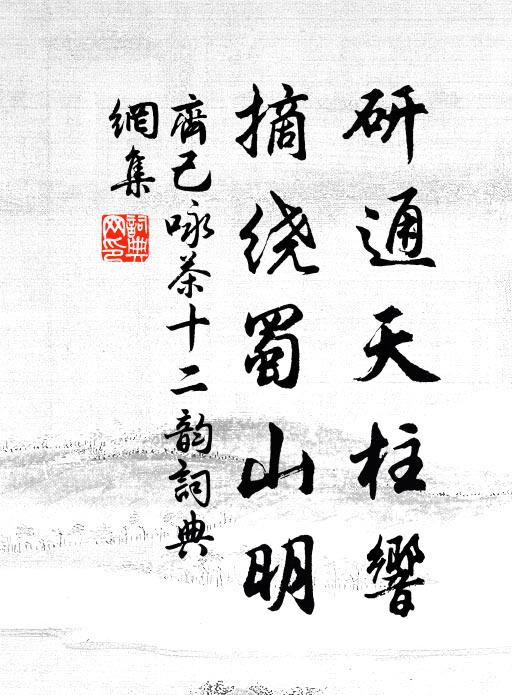 研通天柱響
摘绕蜀山明
齊己咏茶十二韵詞典
網集
詞典網印